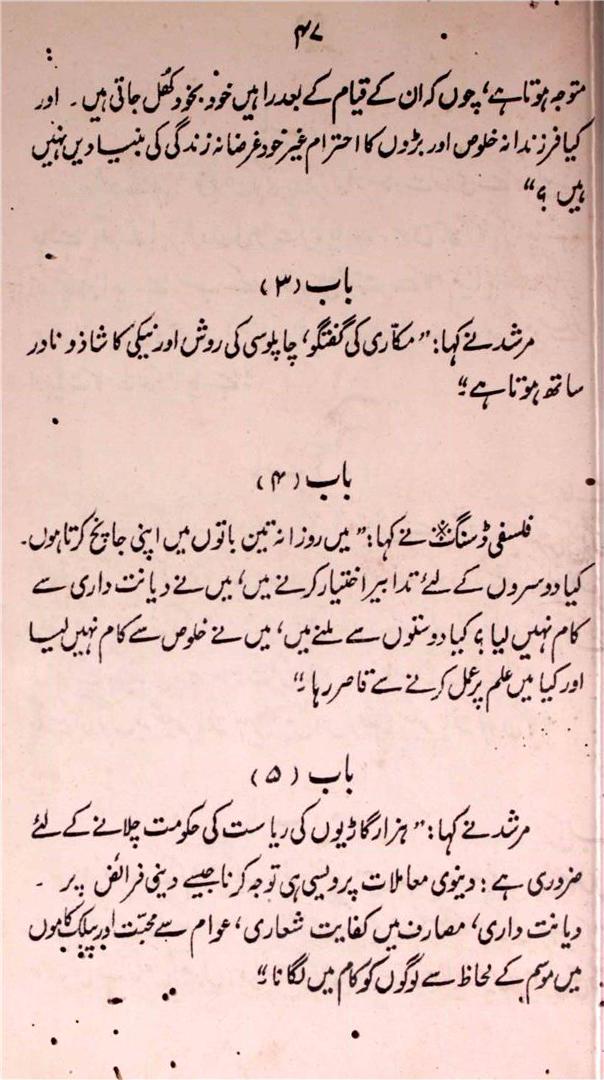 ۴۷
متوجہ ہوتا ہے، چوں کہ ان کے قیام کے بعد راہیں خود بخود کھل جاتی ہیں ۔ اور
کیا فرزندانہ خلوص اور بڑوں کا احترام غیر خود غرضانہ زندگی کی بنیادیں نہیں
ہیں ؟"
باب (۳)
مرشد نے کہا: "مکاری کی گفتگو، چاپلوسی کی روش اور نیکی کا شاذ و نادر
ساتھ ہوتا ہے۔"
باب (۴)
فلسفی ڈسنگ※ نے کہا: "میں روزانہ تین باتوں میں اپنی جانچ کرتا ہوں۔
کیا دوسروں کے لئے تدابیر اختیار کرنے میں، میں نے دیانت داری سے
کام نہیں لیا ؟ کیا دوستوں سے ملنے میں، میں نے خلوص سے کام نہیں لیا
اور کیا میں علم پر عمل کرنے سے قاصر رہا ۔"
باب (۵)
مرشد نے کہا: "ہزار گاڑیوں کی ریاست کی حکومت چلانے کے لئے
ضروری ہے : دینوی معاملات پر ویسی ہی توجہ کرنا جیسے دینی فرائض پر ۔
دیانت داری، مصارف میں کفایت شعاری، عوام سے محبت اور پبلک کاموں
میں موسم کے لحاظ سے لوگوں کو کام میں لگانا ۔"